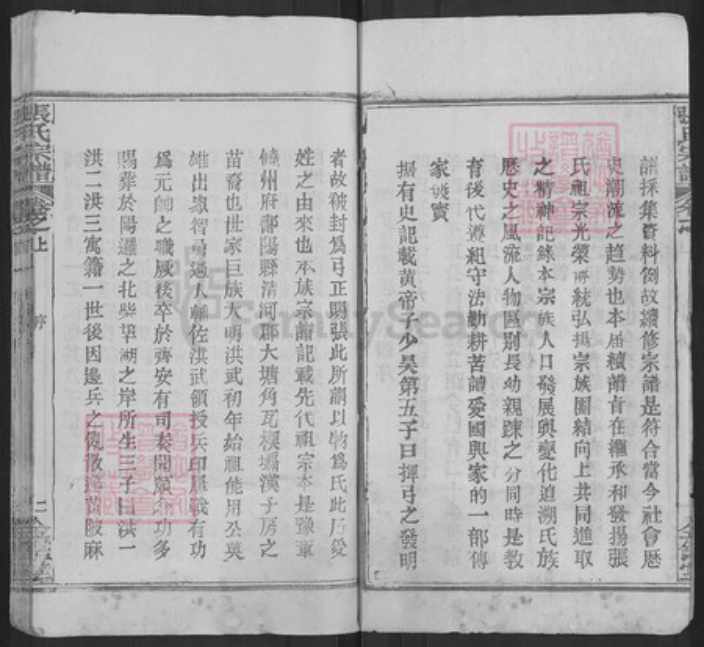 張氏宗譜
譜採集資料例故續修宗譜是符合當今社會歷
史潮流之趨勢也本届續譜旨在繼承和發揚張
氏祖宗光榮傳統弘揚宗族團結向上共同進取
之精神記錄本宗族人口發展與變化追溯氏族
歷史之風流人物區別長幼親踈之分同時是教
育後代遵祖守法勤耕苦讀愛國與家的一部傳
家寶
據有史記載黄帝子少昊第五子曰揮弓之發明
者故被封爲弓正賜張此所謂以物爲氏此后爰
姓之由來也本族宗譜記載先代祖宗本是豫章
饒州府鄱陽縣清河郡大塘角瓦楔壩漢子房之
苗裔也世家巨族大明洪武初年始祖能用公英
雄出衆智勇過人輔佐洪武領授兵印屡戰有功
爲元帥之職厥後卒於齊安有司奏聞功多
賜葬於陽邏之北柴望湖之岸所生三子曰洪一
洪二洪三寓籍一世後因邊兵之散逃黄陂麻
張氏宗譜
卷之上
序
二
FamilySearch